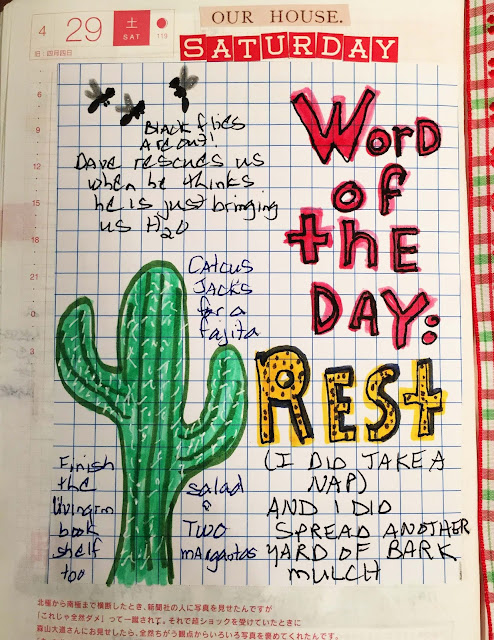 4 29 土 SAT 119
旧:四月四日
OUR HOUSE.
SATURDAY
6
9
12
15
18
21
0
3
BLACK flies
Are out!
Dave rescues us
when he thinks
he is just bringing
us H2O
Word
of
the
DAY:
Catcus
Jacks
for a
fajita
Rest
(I DID TAKE A
NAP)
AND I DID
SPREAD ANOTHER
YARD OF BARK
MULCH
Finish
the
livingrm
book
shelf
too
salad
&
Two
margaotas
北極から南極まで横断したとき、新聞社の人に写真を見せたんですが
「これじゃ全然ダメ」って一蹴されます。それで超ショックを受けていたときに
森山大道さんにお見せしたら、全然ちがう観点からいろいろ写真を褒めてくれたんです。